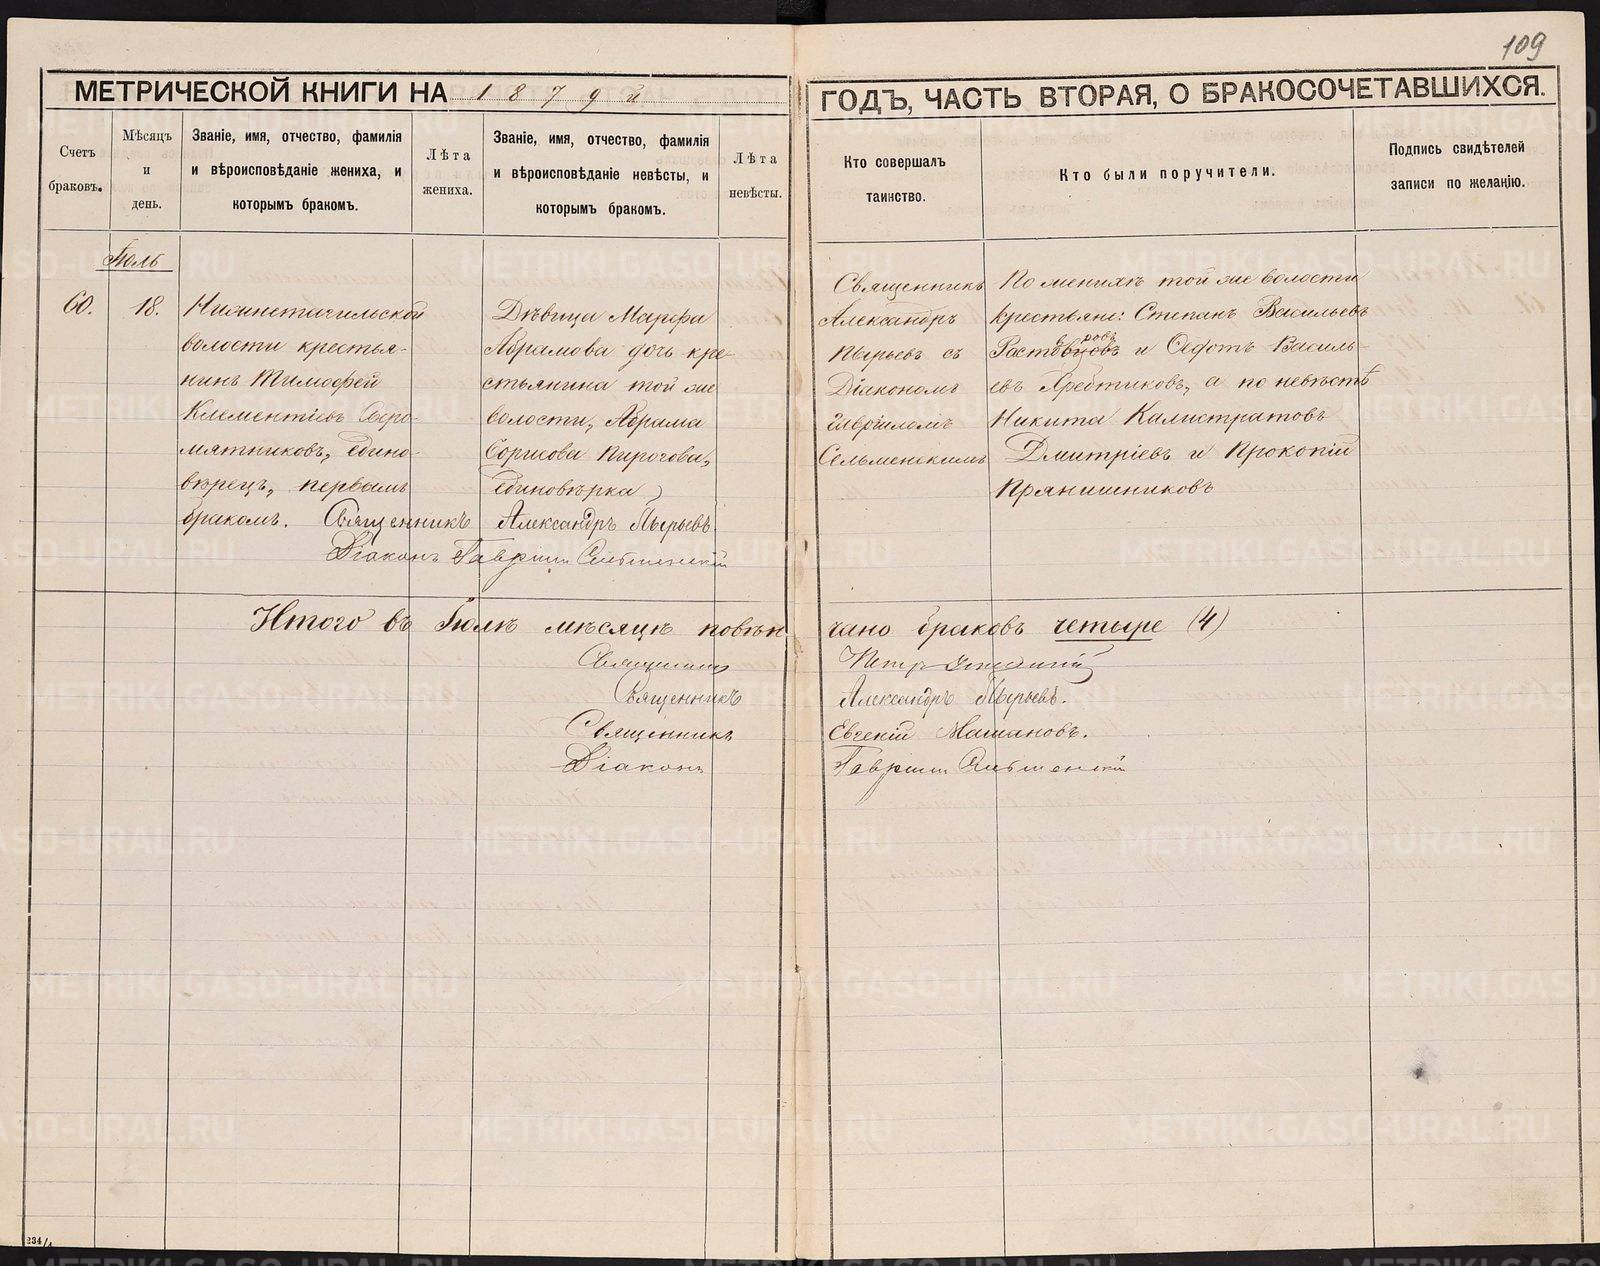 109
МЕТРИЧЕСКОЙ КНИГИ НА 1879й ГОДЪ, ЧАСТЬ ВТОРАЯ, О БРАКОСОЧЕТАВШИХСЯ.
Счетъ
браковъ.
Мѣсяцъ
и
день.
Званіе, имя, отчество, фамилія
и вѣроисповѣданіе жениха, и
которымъ бракомъ.
Лѣта
жениха.
Званіе, имя, отчество, фамилія
и вѣроисповѣданіе невѣсты, и
которымъ бракомъ.
Лѣта
невѣсты.
Кто совершалъ
таинство.
Кто были поручители.
Подпись свидѣтелей
записи по желанію.
Іюль
60.
18.
Нижнетагильской
волости крестья-
нинъ Тимофей
Клементіевъ Сыро-
мятниковъ, едино-
вѣрецъ, первымъ
бракомъ.
Дѣвица Марфа
Абрамова дочь кре-
стьянина той же
волости, Абрама
Борисова Пирогова,
единовѣрка
Священникъ
Александръ
Пырьевъ съ
Діакономъ
Гавріиломъ
Сельменскимъ
По женихѣ той же волости
крестьяне: Степанъ Васильевъ
и Федотъ Василь-
евъ Хребтиковъ, а по невѣстѣ
Никита Калистратовъ
Дмитріевъ и Прокопій
Прянишниковъ
Священникъ Александръ Пырьевъ.
Діаконъ Гавріилъ Сельменскій
Итого въ Іюлѣ мѣсяцѣ повѣнчано браковъ четыре (4)
Священникъ Петръ
Священникъ Александръ Пырьевъ.
Священникъ Евгеній Машановъ.
Діаконъ Гавріилъ Сельменскій
234/1
METRIKI.GASO-URAL.RU